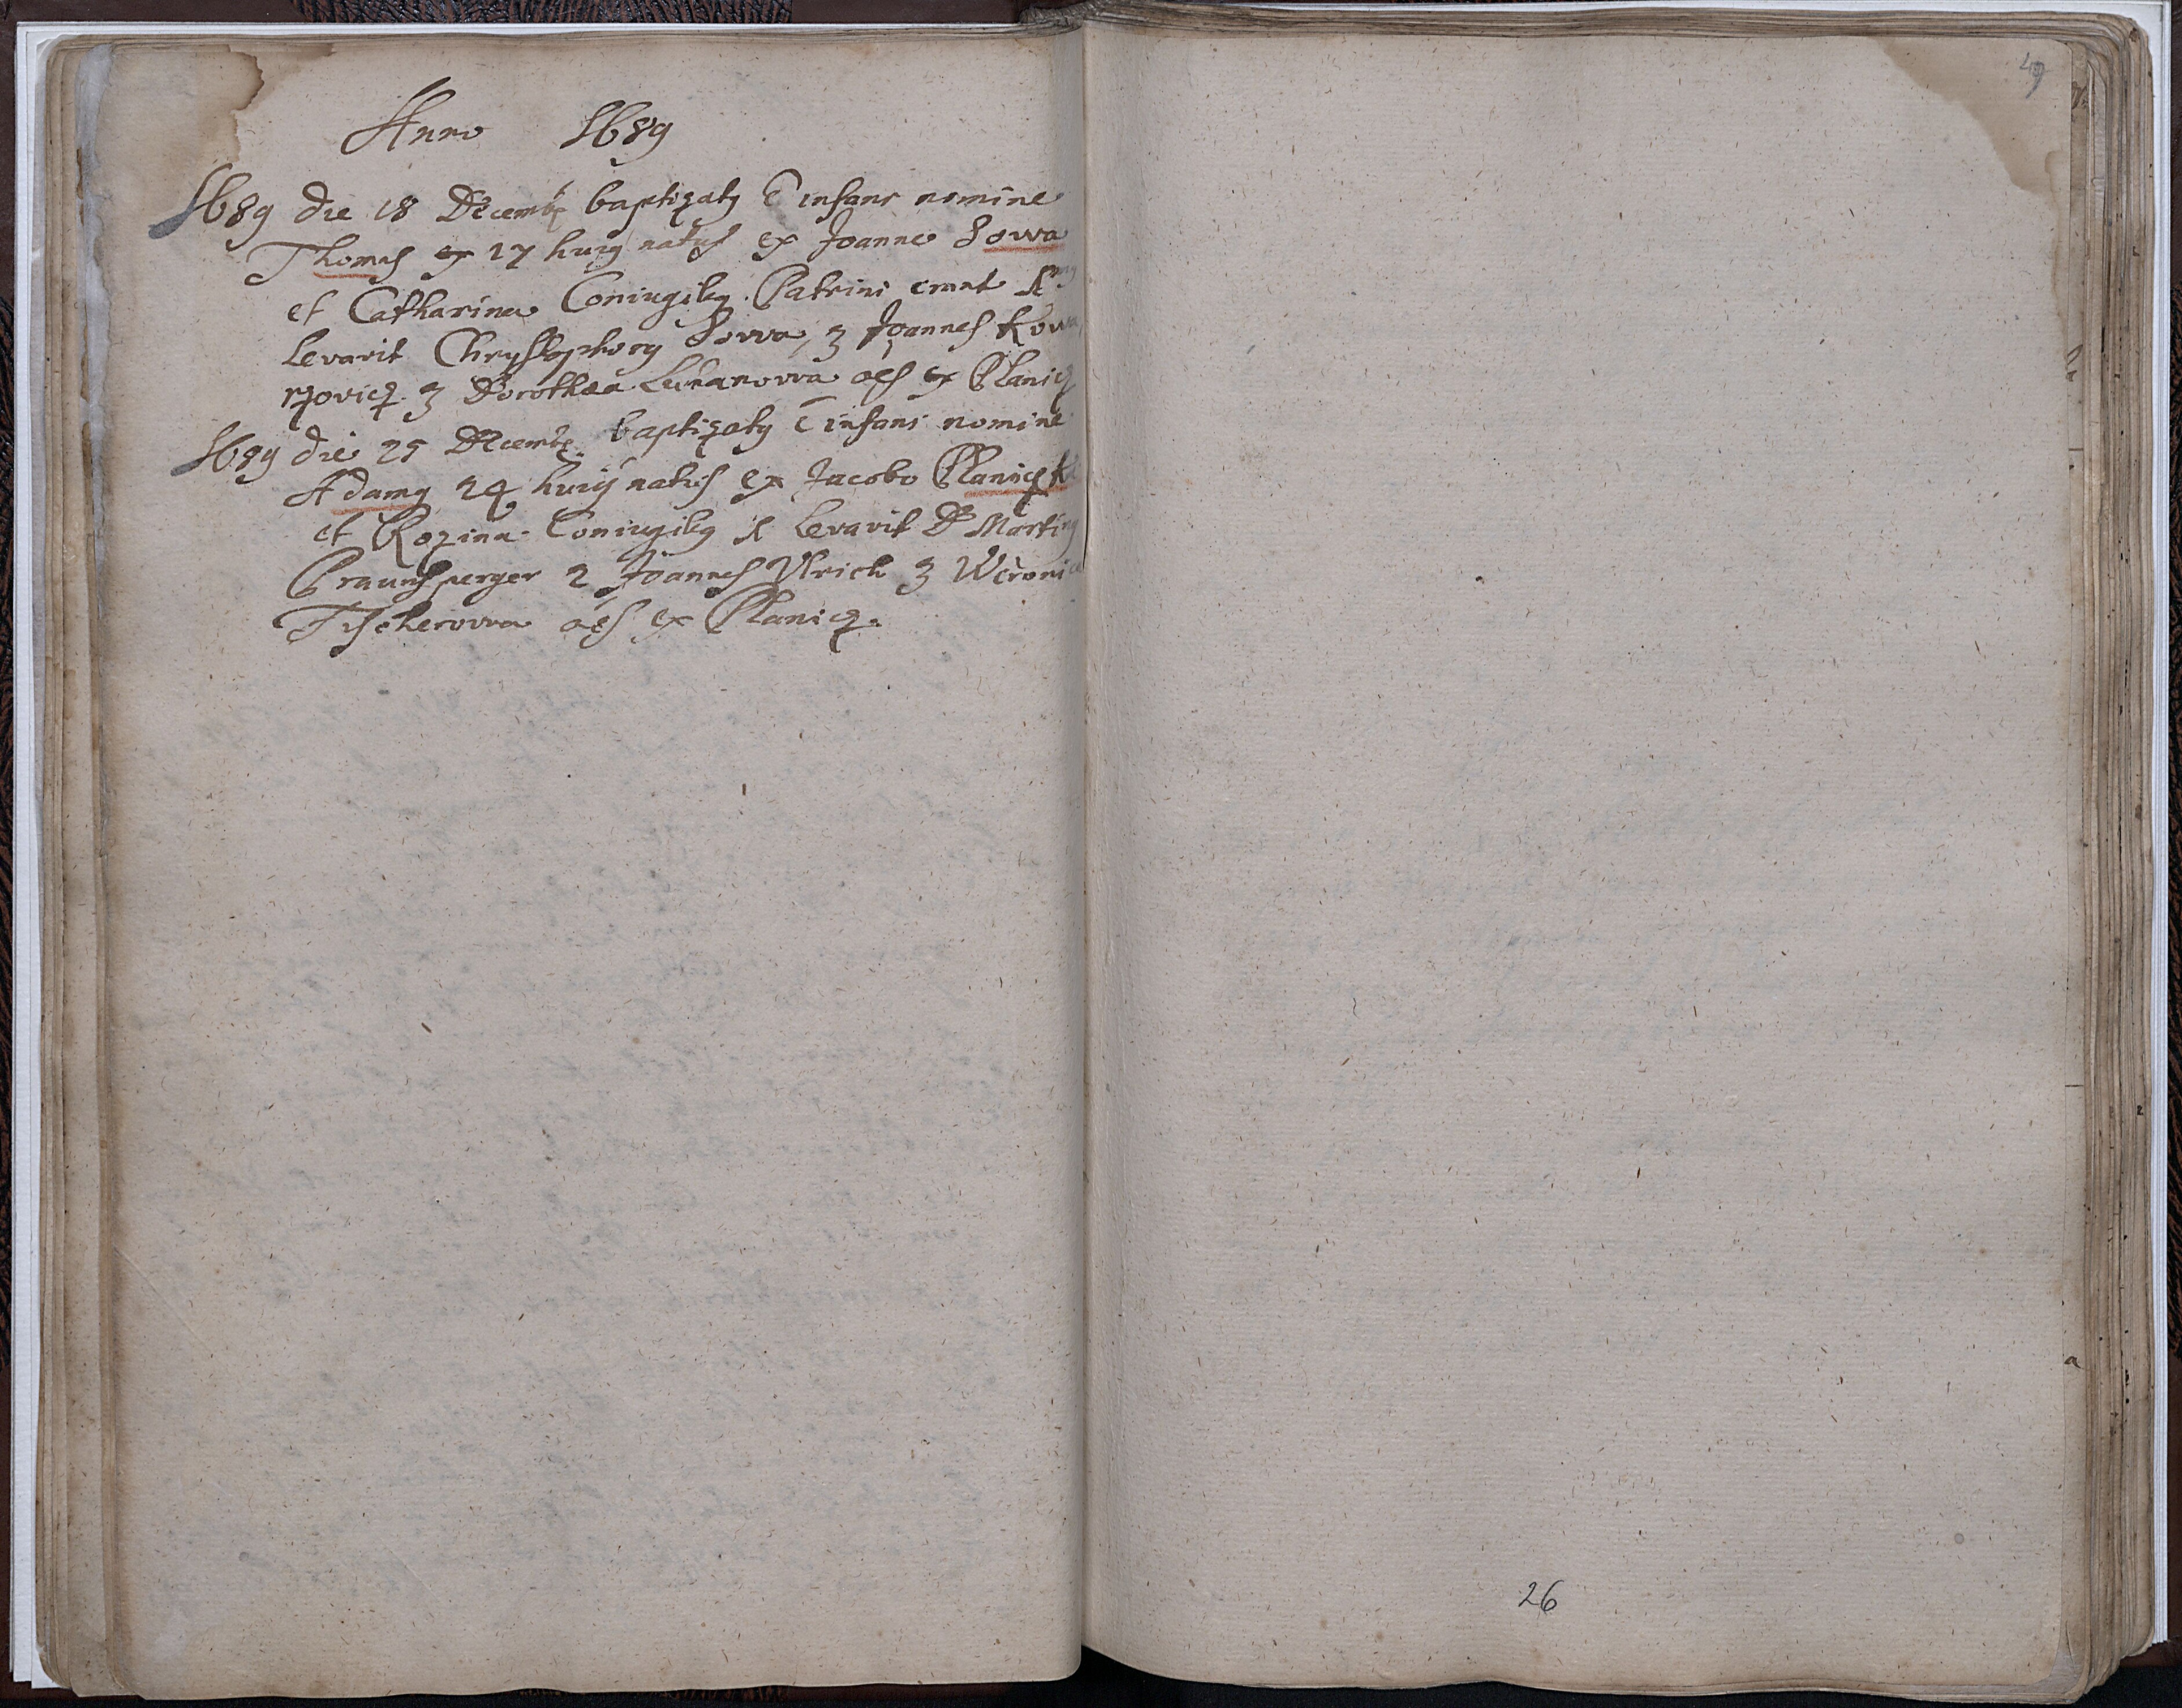 Anno 1689
1689 die 18 Decemb. baptizatꝰ ē infans nomine
Thomas ex 17 huiꝰ natus ex Joanne Sowa
et Catharina Coniugibꝰ. Patrini erant 1
levavit Chrystophorꝰ Sowa, 3 Joannes
3 Dorothaea oēs ex Planicz
1689 die 25 Decemb. baptizatꝰ ē infans nomine
Adamꝰ 24 huiꝰ natus ex Jacobo
et Rozina Coniugibꝰ 1 levavit D Martinꝰ
Braunsperger 2 Joannes Vlrich 3 Weronica
Fischerowa oēs ex Planicz.
49
26